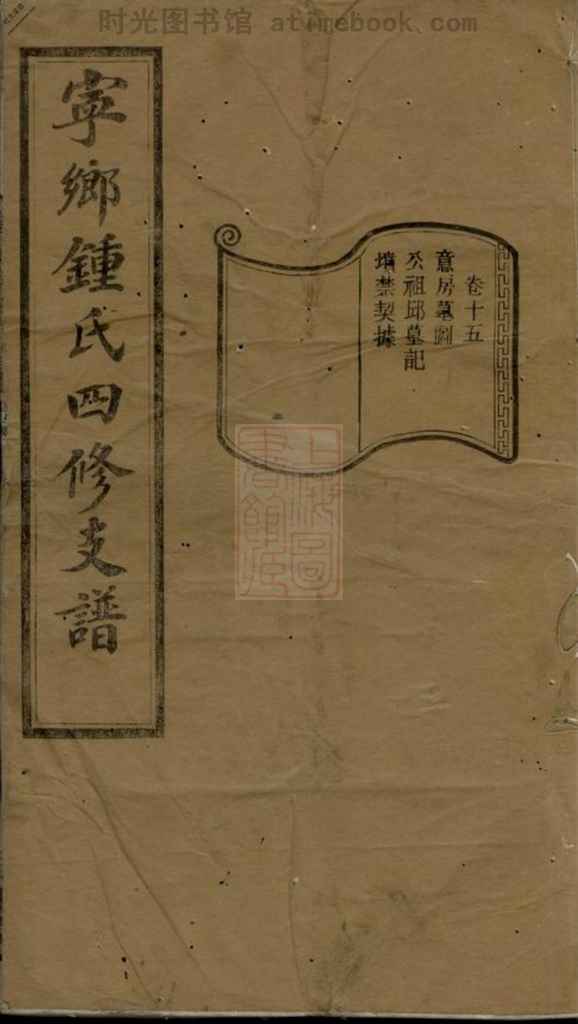 时光图书馆 atimebook.com
寜鄉鍾氏四修支譜
卷十五
意房墓圖
公祖邱墓記
墳禁契據
上海圖書館藏